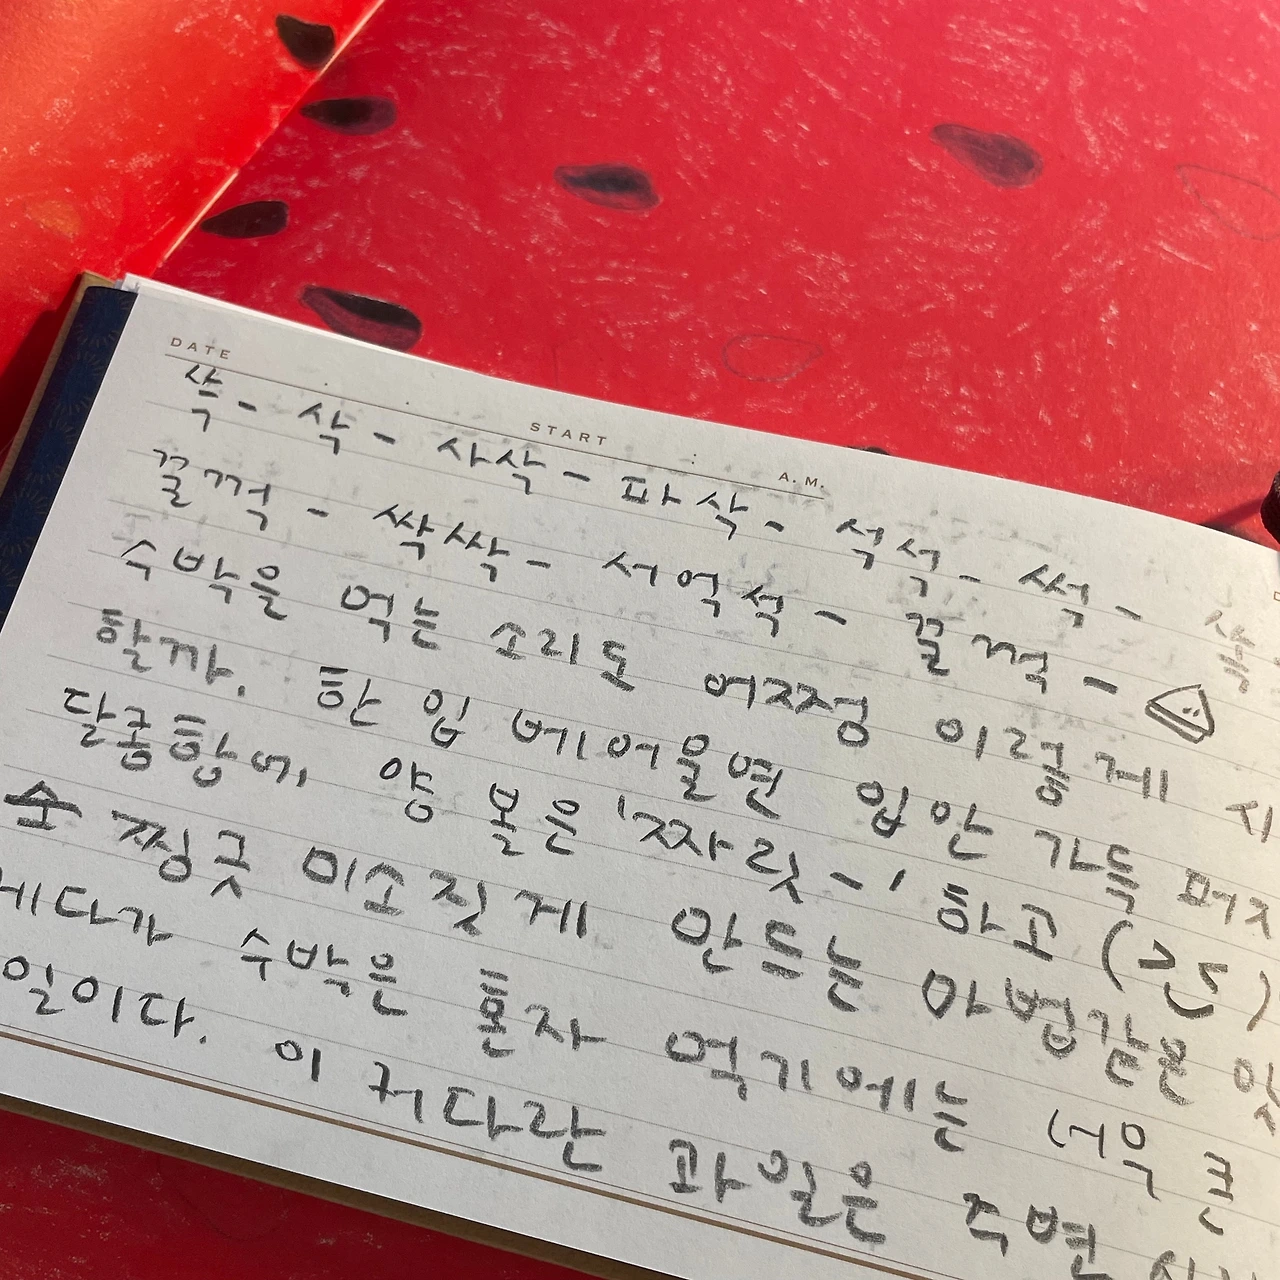 DATE
START : A.M.
삭- 삭- 사삭- 파삭- 석석- 썩-
꿀꺽- 싹싹- 서억석- 꿀꺽-
수박을 먹는 소리도 어쩌정 이렇게
할까. 한 입 베어물면 입안 가득 퍼지
달콤함에, 양 볼은 '짜릿-' 하고 (>ㄷ5)
순 찡긋 미소짓게 만드는 마법같은 맛
게다가 수박은 혼자 먹기에는 너무 큰
일이다. 이 커다란 과일은 주변